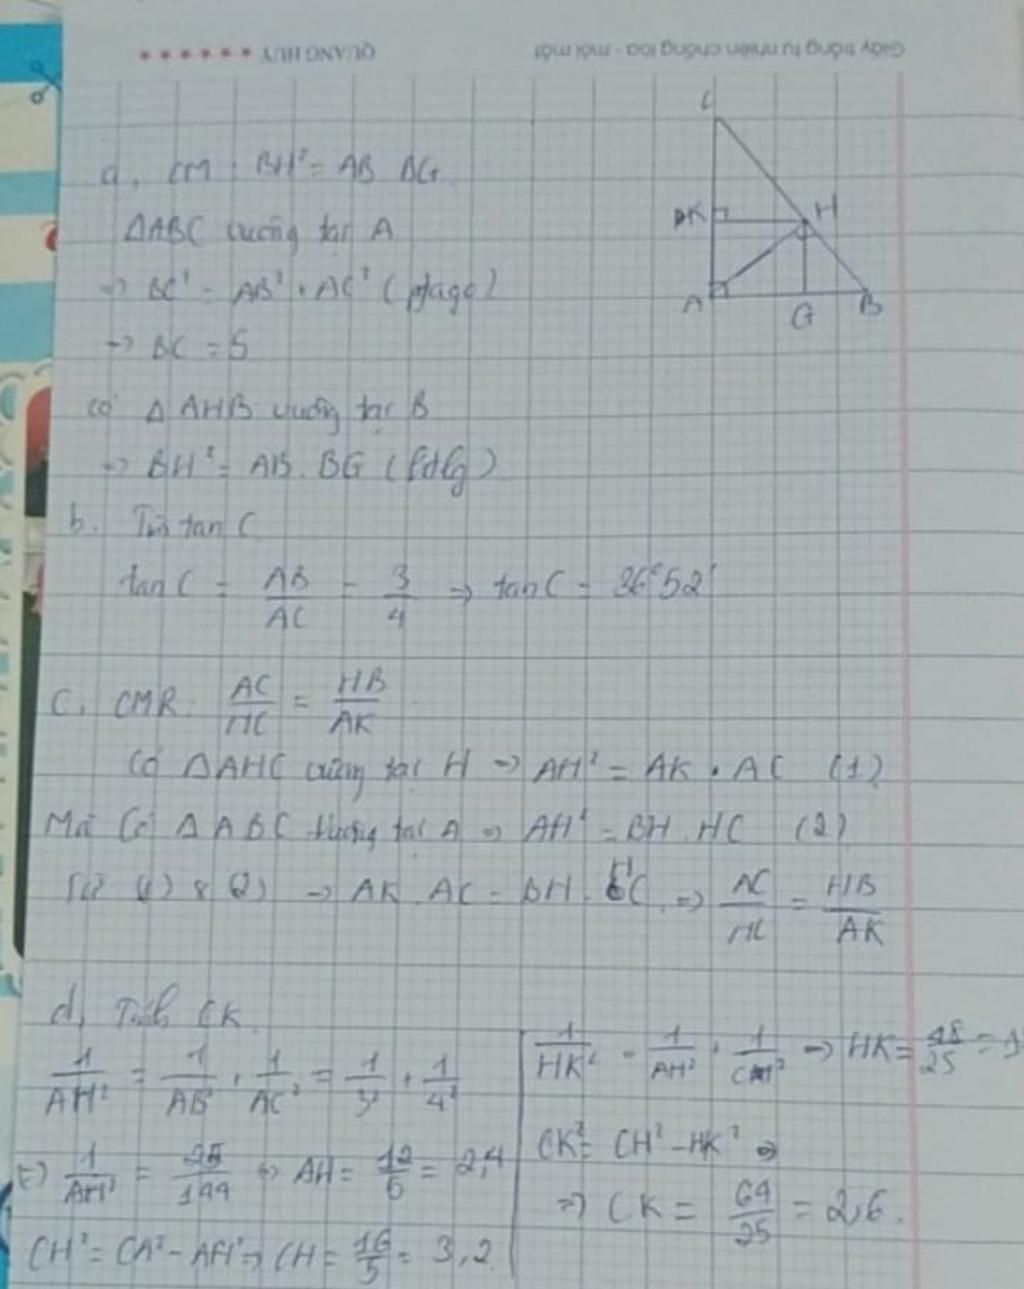 Giấy trắng tự nhiên chống lóa - mỏi mắt
QUANG HUY ★★★★★★
C
K
H
A
G
B
a, CM: BH² = AB BG
ΔABC vuông tại A
=> BC² = AB² + AC² (pytago)
-> BC = 5
Có Δ AHB vuông tại B
=> BH² = AB. BG (htlg)
b. Tín tan C
tan C = AB/AC = 3/4 => tan C = 36°52'
C. CMR: AC/HC = HB/AK
Có ΔAHC vuông tại H => AH² = AK . AC (1)
Mà Có ΔABC vuông tại A => AH² = BH . HC (2)
Từ (1) & (2) => AK. AC = BH. HC => AC/HC = HB/AK
d, Tính CK
1/AH² = 1/AB² + 1/AC² = 1/3² + 1/4²
1/AH² = 25/144 => AH = 12/5 = 2,4
CH² = CA² - AH² => CH = 16/5 = 3,2
1/HK² = 1/AH² + 1/CH² => HK = 48/25 =
CK² = CH² - HK² =>
=> CK = 64/25 = 2,6.